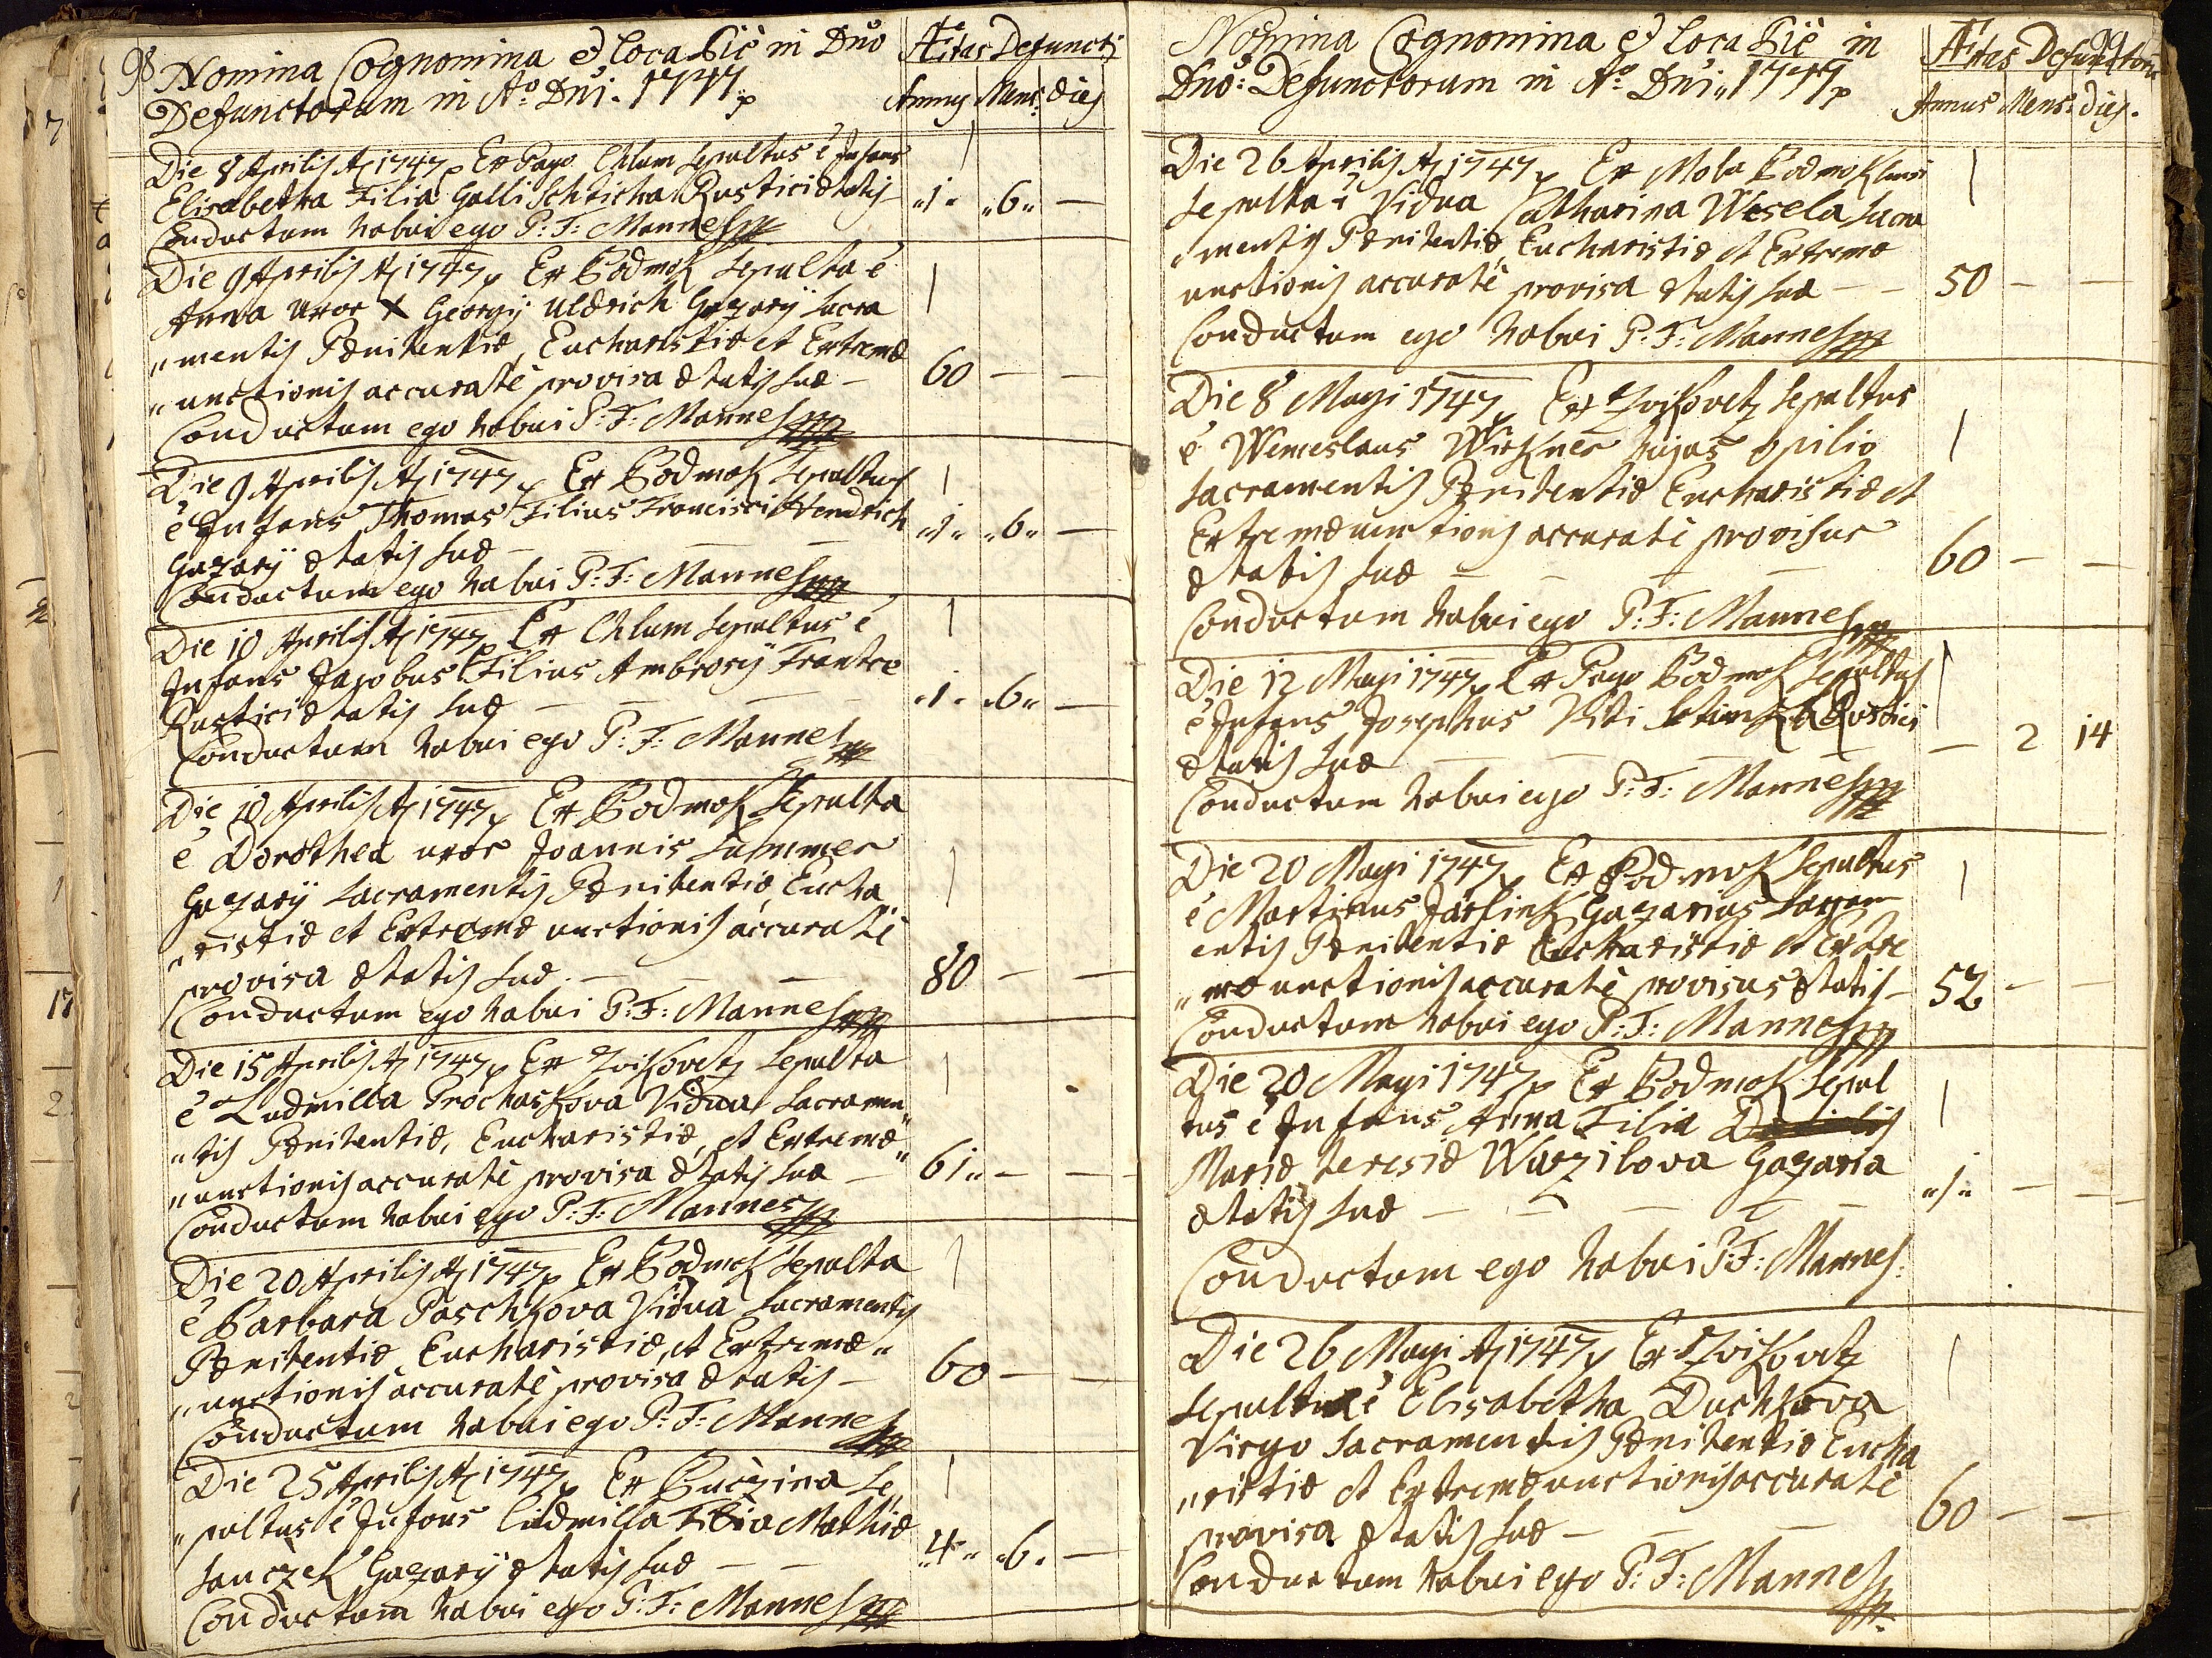 98 Nomina Cognomina et Loca Pie in Dno
Defunctorum in Ao Dni. 1747
Ætas Defuncti
Annus Mens: dies
Die 8 Aprilis A 1747 Ex Pago Chlum sepultus e Infans
Elisabetha Filia Galli Schticha Rustici ætatis „1„ „6„ —
Conductum habui ego P: F: Mannes
Die 9 Aprilis A 1747 Ex Podmok sepulta e
Anna uxor X Georgij Uldrich Gazarij sacra
„mentis Pænitentiæ, Eucharistiæ et Extremæ
„unctionis accuratè provisa ætatis suæ — 60 — —
Conductum ego habui P: F: Mannes
Die 9 Aprilis A 1747 Ex Podmok sepultus
e Infans Thomas Filius Francisci Hendrich
Gazarij ætatis suæ — „1„ „6„ —
Conductum ego habui P: F: Mannes
Die 10 Aprilis A 1747 Ex Chlum sepultus e
Infans Jacobus Filius Ambrosij
Rustici ætatis suæ — „1„ „6„ —
Conductum habui ego P: F: Mannes
Die 10 Aprilis A 1747 Ex Podmok sepulta
e Dorothea uxor Joannis Summer
Gazarij sacramentis Pænitentiæ, Eucha
„ristiæ et Extremæ unctionis accuratè
provisa ætatis suæ — 80 — —
Conductum ego habui P: F: Mannes
Die 15 Aprilis A 1747 Ex Zvikovetz sepulta
e Ludmilla Prochaskova Vidua sacramen„
„tis Pænitentiæ, Eucharistiæ, et Extremæ„
„unctionis accuratè provisa ætatis suæ — 61„ — —
Conductum habui ego P: F: Mannes
Die 20 Aprilis A 1747 Ex Podmok sepulta
e Barbara Paschkova Vidua sacramentis
Pænitentiæ, Eucharistiæ, et Extremæ„
„unctionis accuratè provisa ætatis — 60 — —
Conductum habui ego P: F: Mannes
Die 25 Aprilis A 1747 Ex Buczina se
„pultus e Infans Ludmilla Filia Mathiæ
Janczek Gazarij ætatis suæ — „4„ „6„ —
Conductum habui ego P: F: Mannes
Nomina Cognomina et Loca Pie in
Dno: Defunctorum in Ao Dni„ 1747
99
Ætas Defunctorum
Annus Mens: dies.
Die 26 Aprilis A 1747 Ex Mola
sepulta e Vidua Catharina Wesela sacra
„mentis Pænitentiæ, Eucharistiæ et Extremæ
unctionis accuratè provisa ætatis suæ — 50 — —
Conductum ego habui P: F: Mannes
Die 8 Maji 1747 Ex Zvikovetz sepultus
e Wenceslaus Wirkner hujas opilio
sacramentis Pænitentiæ Eucharistiæ et
Extremæ unctionis accuratè provisus
ætatis suæ — 60 — —
Conductum habui ego P: F: Mannes
Die 12 Maji 1747 Ex Pago Podmok sepultus
e Infans Josephus Viti Rustici
ætatis suæ — — 2 14
Conductum habui ego P: F: Mannes
Die 20 Maji 1747 Ex Podmok sepultus
e Martinus Gazarius sacram
entis Pænitentiæ Eucharistiæ et Extre
„mæ unctionis accuratè provisus ætatis — 52 — —
Conductum habui ego P: F: Mannes
Die 20 Maji 1747 Ex Podmok sepul
tus e Infans Anna Filia
Mariæ teresiæ Wurzilova Gazaria
ætatis suæ — „1„ — —
Conductum ego habui P: F: Mannes
Die 26 Maji A 1747 Ex Zvikovetz
sepulta e Elisabetha Duchkova
Virgo sacramentis Pænitentiæ Eucha
„ristiæ et Extremæ unctionis accuratè
provisa ætatis suæ — 60 — —
Conductum habui ego P: F: Mannes